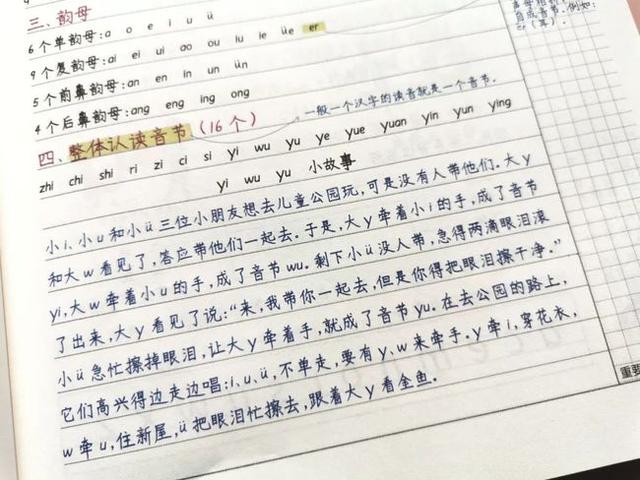 三、韵母
6个单韵母: a o e i u ü
9个复韵母: ai ei ui ao ou iu ie üe er
5个前鼻韵母: an en in un ün
4个后鼻韵母: ang eng ing ong
一般一个汉字的读音就是一个音节.
四、整体认读音节(16个)
zhi chi shi ri zi ci si yi wu yu ye yue yuan yin yun ying
yi wu yu 小故事
小i、小u和小ü三位小朋友想去儿童公园玩,可是没有人带他们.大y
和大w看见了,答应带他们一起去.于是,大y牵着小i的手,成了音节
yi,大w牵着小u的手,成了音节wu.剩下小ü没人带,急得两滴眼泪滚
了出来,大y看见了说:“来,我带你一起去,但是你得把眼泪擦干净.”
小ü急忙擦掉眼泪,让大y牵着手,就成了音节yu.在去公园的路上,
它们高兴得边走边唱:i、u、ü,不单走,要有y、w来牵手.y牵i,穿花衣,
w牵u,住新屋,ü把眼泪忙擦去,跟着大y看金鱼.
自成音节,例如:
er(耳).
重要